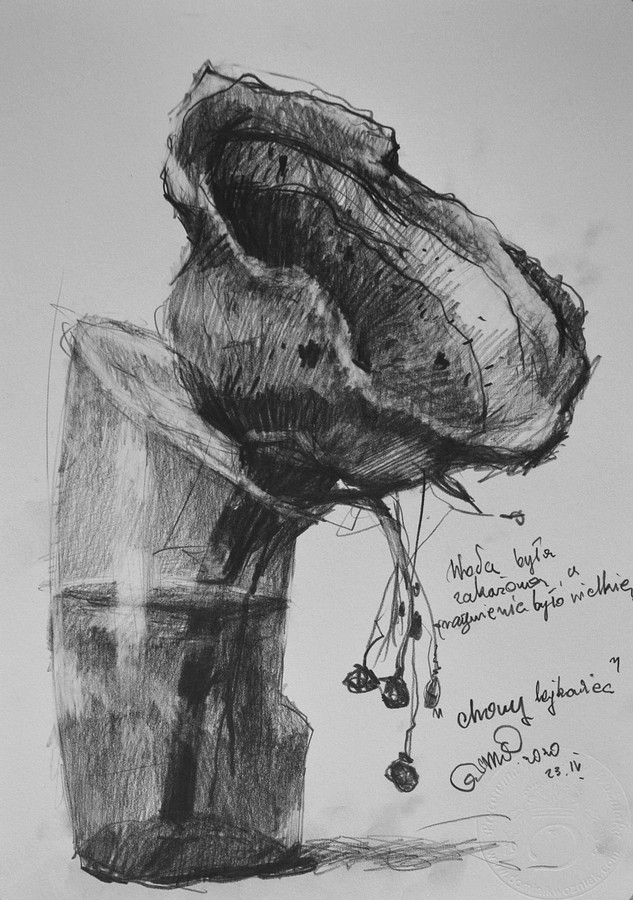 Woda była
zakażona, a
pragnienie było wielkie,
"chory lejkowiec"
2020
23.IV